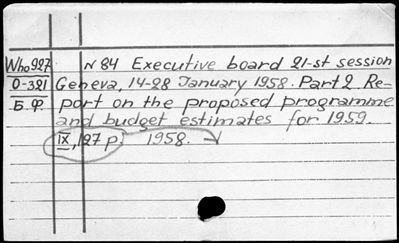 Who 927 N 84 Executive board 21-st session
0-321 Geneva, 14-28 January 1958. Part 2 Re-
Б.Ф. port on the proposed programme
and budget estimates for 1959.
IX, 127 p. 1958.